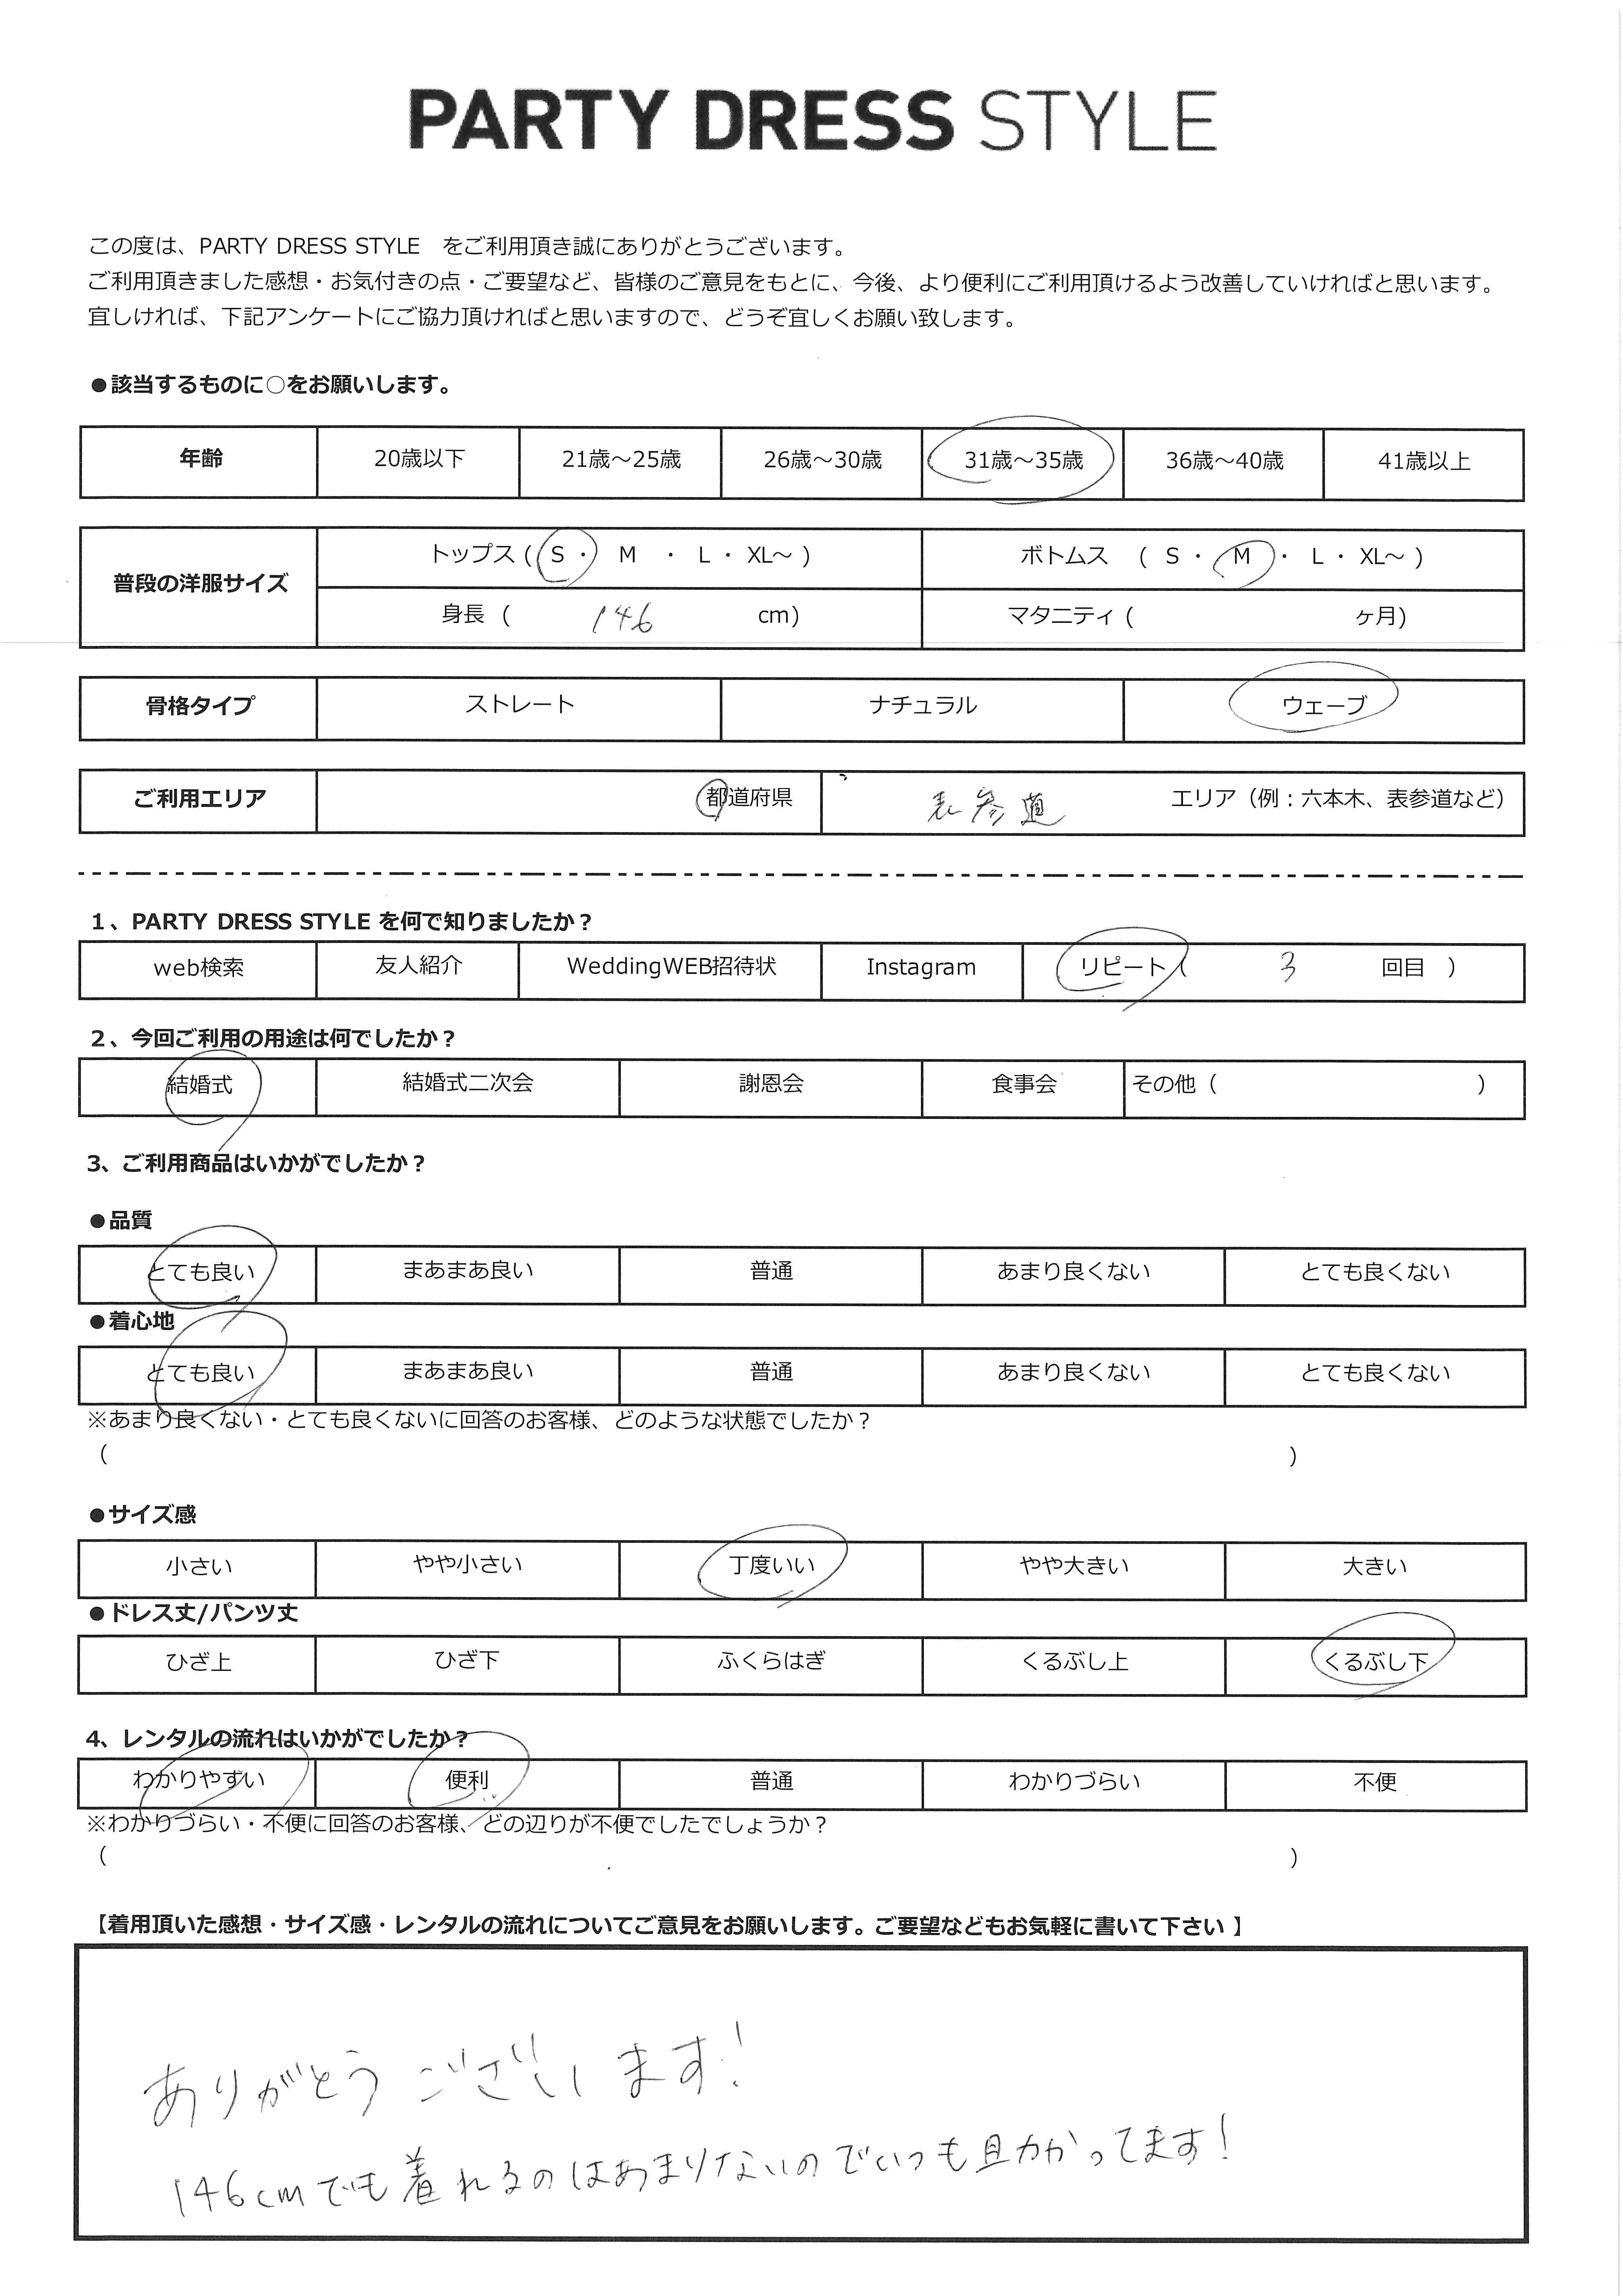 PARTY DRESS STYLE
この度は、PARTY DRESS STYLE　をご利用頂き誠にありがとうございます。
ご利用頂きました感想・お気付きの点・ご要望など、皆様のご意見をもとに、今後、より便利にご利用頂けるよう改善していければと思います。
宜しければ、下記アンケートにご協力頂ければと思いますので、どうぞ宜しくお願い致します。
●該当するものに○をお願いします。
年齢 20歳以下 21歳～25歳 26歳～30歳 31歳～35歳 36歳～40歳 41歳以上
普段の洋服サイズ トップス ( S ・ M ・ L ・ XL～ ) ボトムス ( S ・ M ・ L ・ XL～ )
身長 ( 146 cm) マタニティ ( ヶ月)
骨格タイプ ストレート ナチュラル ウェーブ
ご利用エリア 都道府県 表参道 エリア（例：六本木、表参道など）
1、PARTY DRESS STYLE を何で知りましたか？
web検索 友人紹介 WeddingWEB招待状 Instagram リピート ( 3 回目 )
2、今回ご利用の用途は何でしたか？
結婚式 結婚式二次会 謝恩会 食事会 その他 ( )
3、ご利用商品はいかがでしたか？
●品質
とても良い まあまあ良い 普通 あまり良くない とても良くない
●着心地
とても良い まあまあ良い 普通 あまり良くない とても良くない
※あまり良くない・とても良くないに回答のお客様、どのような状態でしたか？
( )
●サイズ感
小さい やや小さい 丁度いい やや大きい 大きい
●ドレス丈/パンツ丈
ひざ上 ひざ下 ふくらはぎ くるぶし上 くるぶし下
4、レンタルの流れはいかがでしたか？
わかりやすい 便利 普通 わかりづらい 不便
※わかりづらい・不便に回答のお客様、どの辺りが不便でしたでしょうか？
( )
【着用頂いた感想・サイズ感・レンタルの流れについてご意見をお願いします。ご要望などもお気軽に書いて下さい 】
ありがとうございます！
146cmでも着れるのはあまりないのでいつも助かってます！